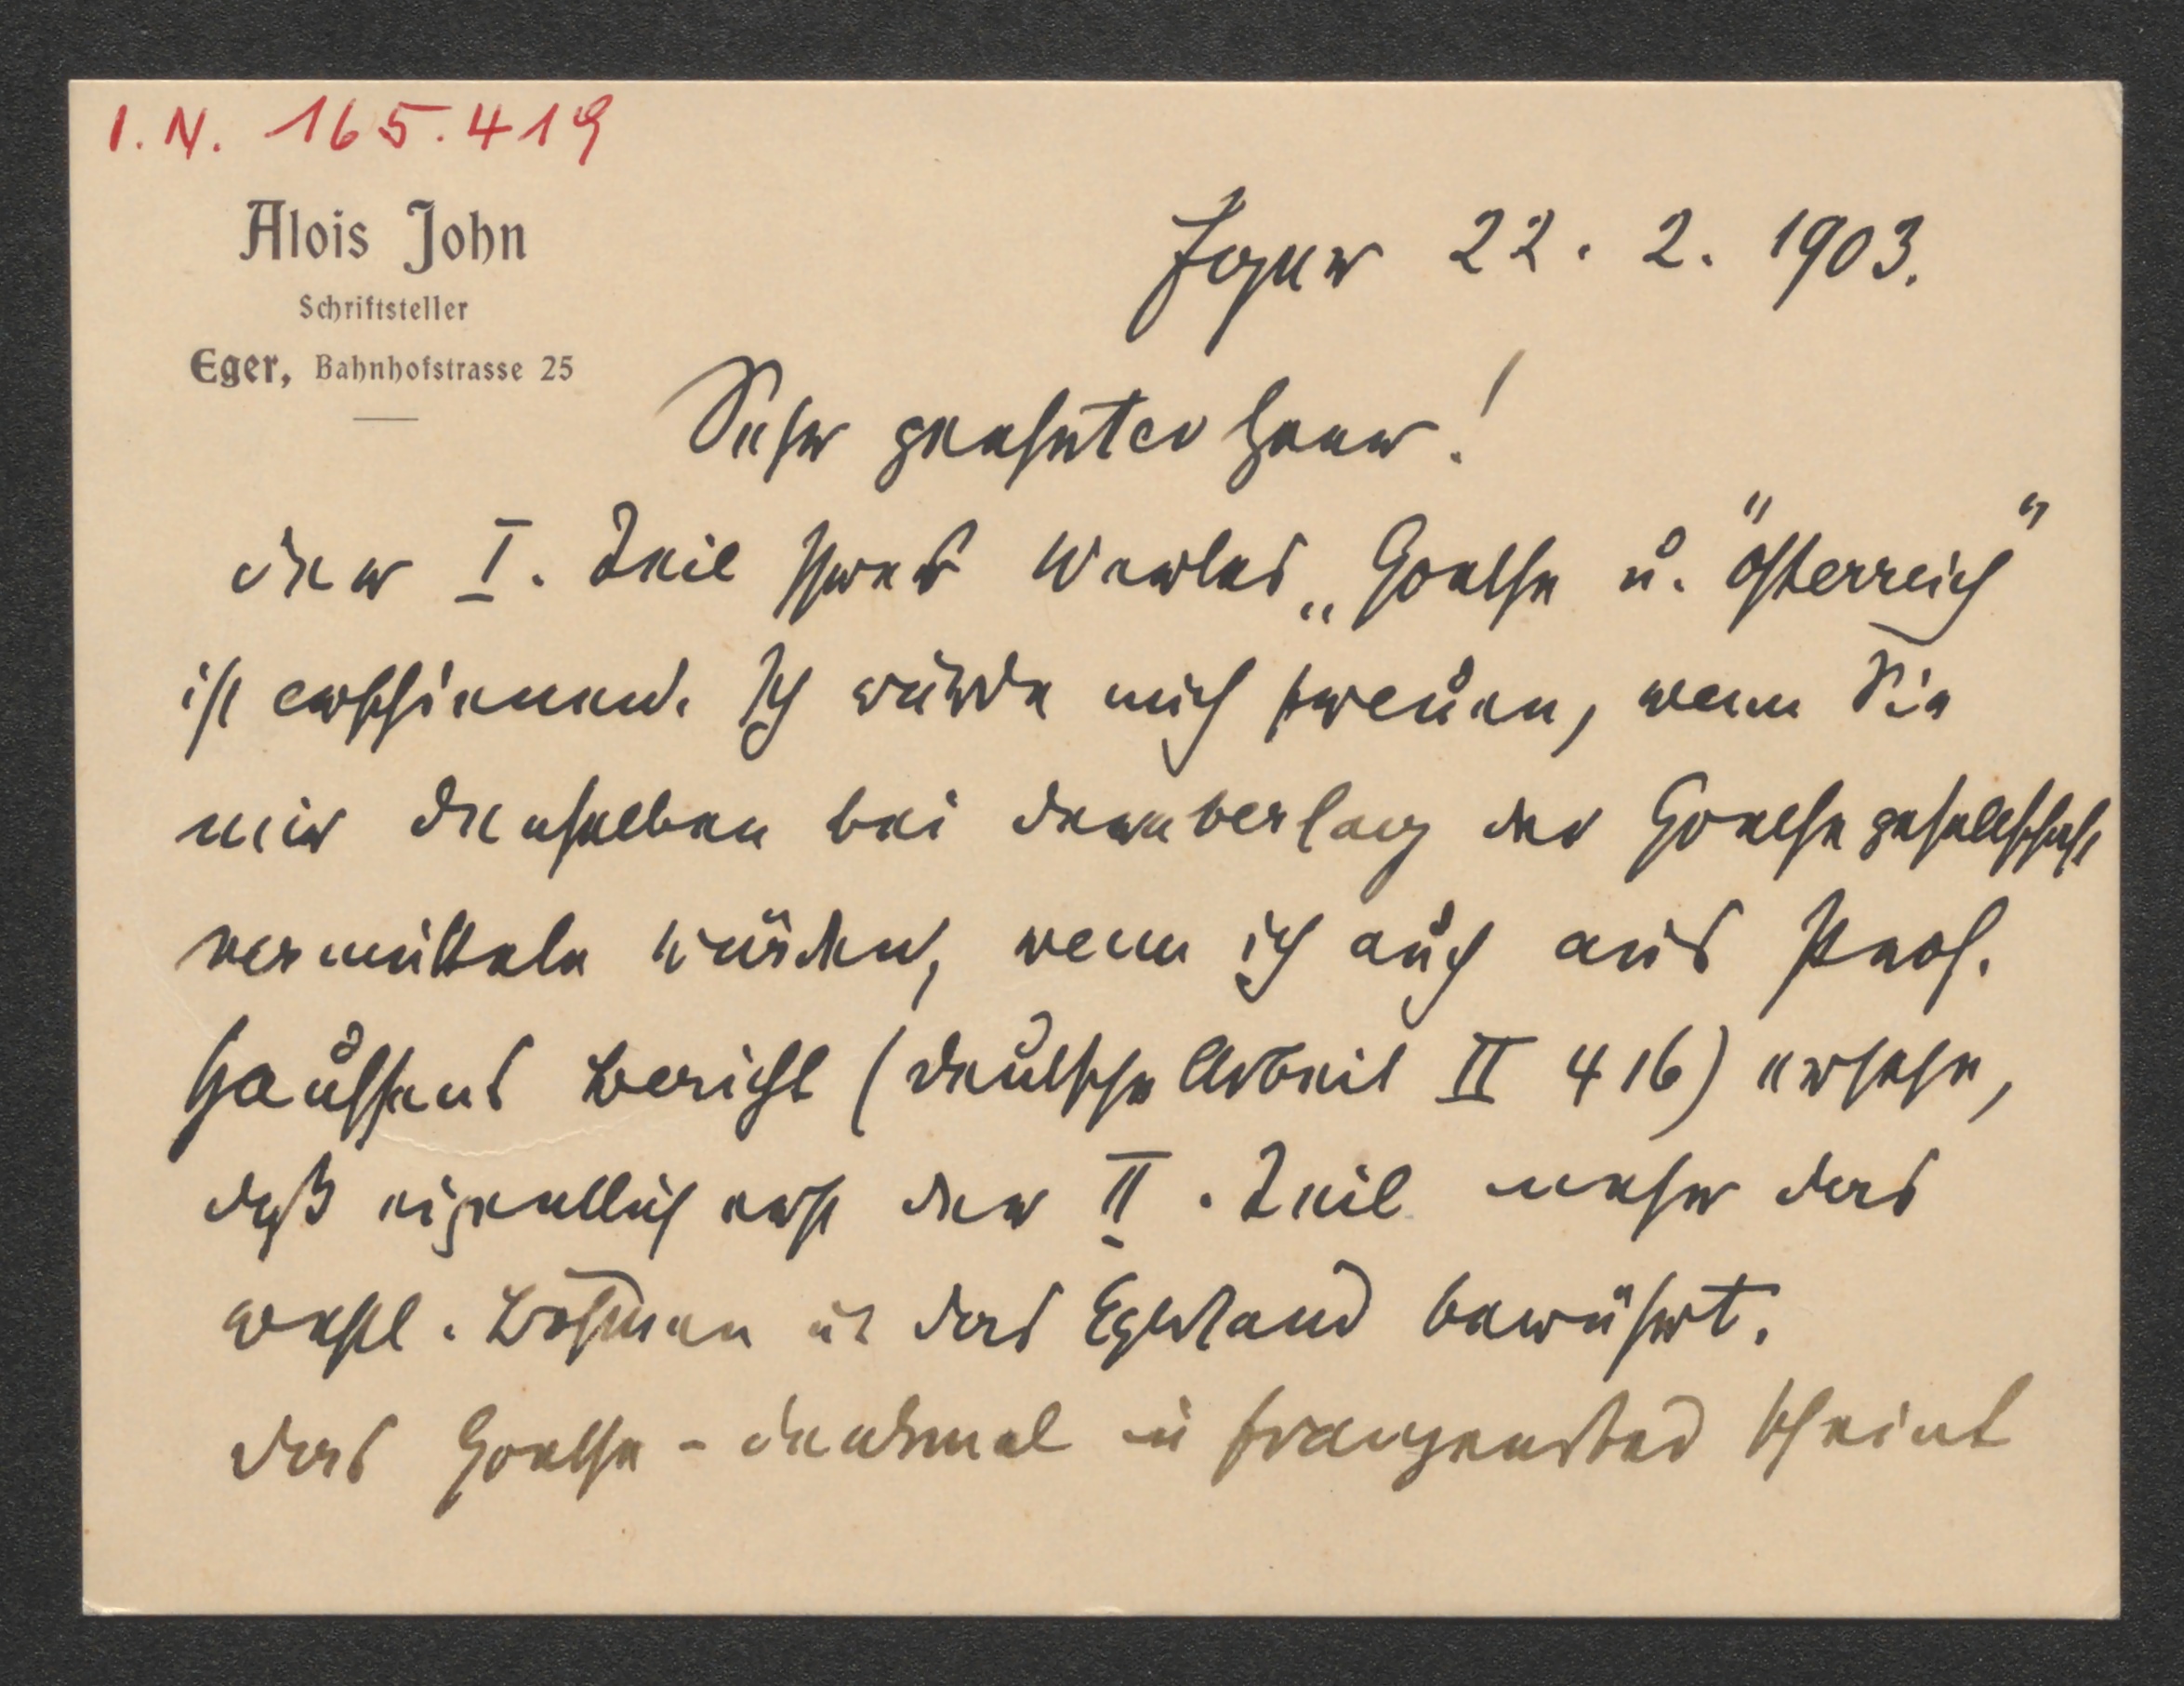 I. N. 165.419
Alois John
Schriftsteller
Eger, Bahnhofstrasse 25
Eger 22. 2. 1903.
Sehr geehrter Herr!
der I. Teil Ihres Werkes „Goethe u. Österreich"
ist erschienen. Ich würde mich freuen, wenn Sie
mir denselben bei dem Verlag der Goethegesellschaft
vermitteln würden, wenn ich auch aus Prof.
Hauffens Bericht (Deutsche Arbeit II 416) ersehe,
daß eigentlich erst der II. Teil mehr das
westl. Böhmen u. das Egerland berührt.
Das Goethe-Denkmal in Franzensbad scheint